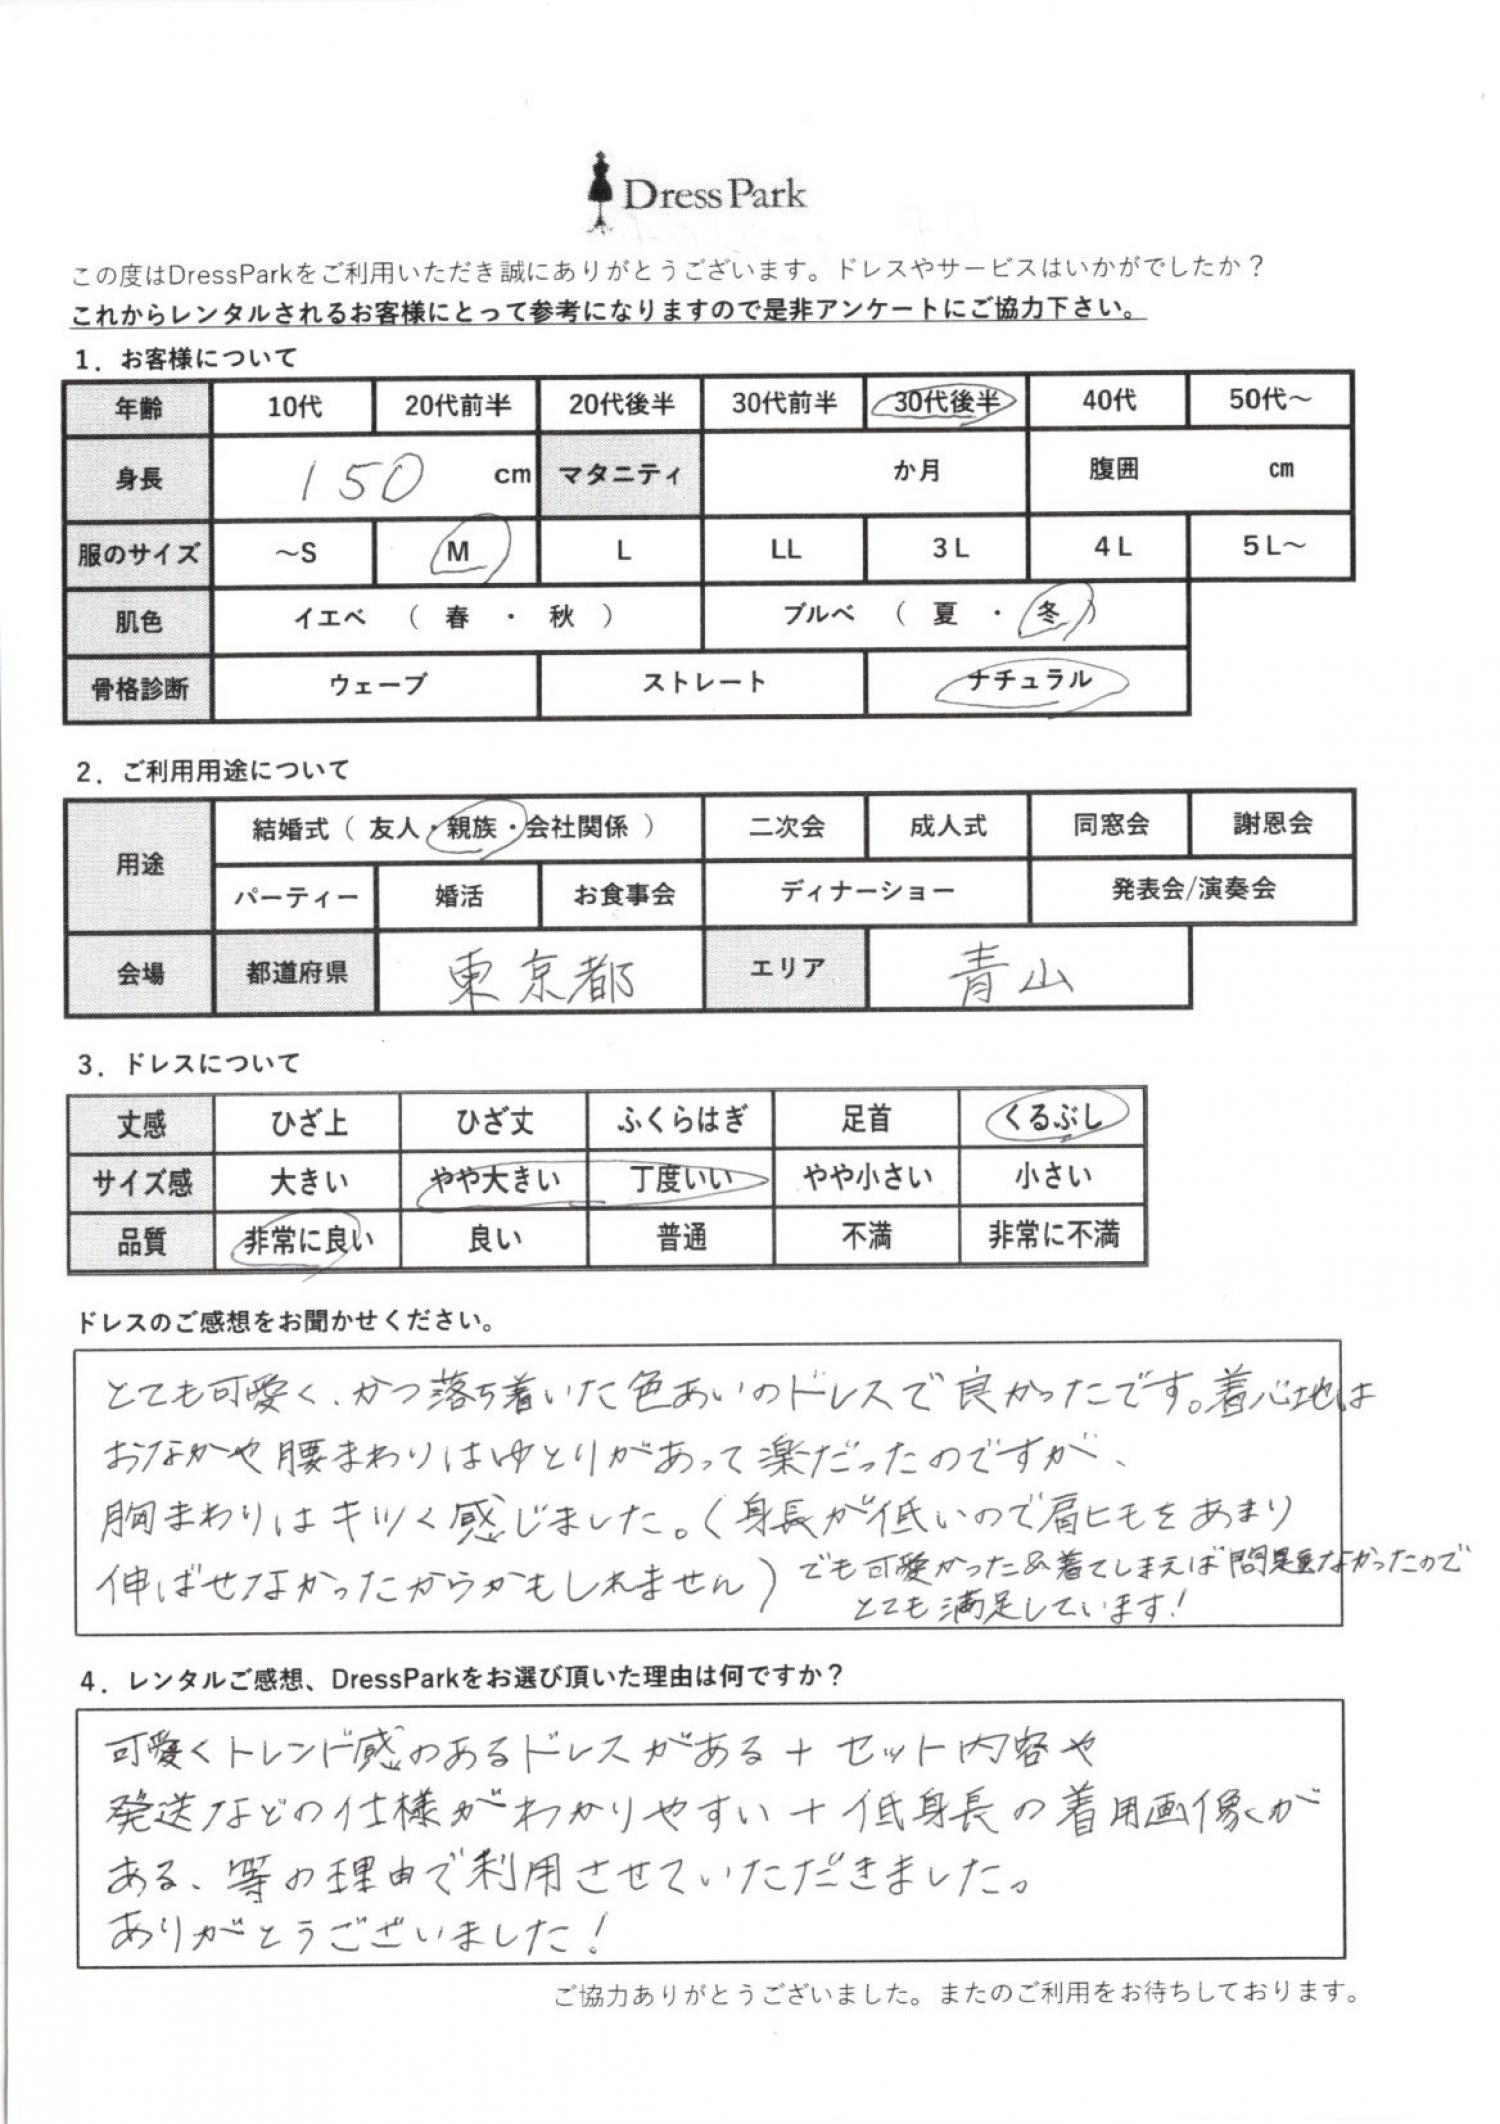 Dress Park
この度はDressParkをご利用いただき誠にありがとうございます。ドレスやサービスはいかがでしたか？
これからレンタルされるお客様にとって参考になりますので是非アンケートにご協力下さい。
1．お客様について
年齢 10代 20代前半 20代後半 30代前半 30代後半 40代 50代～
身長 150 cm マタニティ か月 腹囲 cm
服のサイズ ～S M L LL 3L 4L 5L～
肌色 イエベ （ 春 ・ 秋 ） ブルベ （ 夏 ・ 冬 ）
骨格診断 ウェーブ ストレート ナチュラル
2．ご利用用途について
用途 結婚式（ 友人・親族・会社関係 ） 二次会 成人式 同窓会 謝恩会
パーティー 婚活 お食事会 ディナーショー 発表会/演奏会
会場 都道府県 東京都 エリア 青山
3．ドレスについて
丈感 ひざ上 ひざ丈 ふくらはぎ 足首 くるぶし
サイズ感 大きい やや大きい 丁度いい やや小さい 小さい
品質 非常に良い 良い 普通 不満 非常に不満
ドレスのご感想をお聞かせください。
とても可愛く、かつ落ち着いた色あいのドレスで良かったです。着心地は
おなかや腰まわりはゆとりがあって楽だったのですが、
胸まわりはキツく感じました。（身長が低いので肩ヒモをあまり
伸ばせなかったからかもしれません）でも可愛かった&着てしまえば問題なかったので
とても満足しています！
4．レンタルご感想、DressParkをお選び頂いた理由は何ですか？
可愛くトレンド感のあるドレスがある＋セット内容や
発送などの仕様がわかりやすい＋低身長の着用画像が
ある、等の理由で利用させていただきました。
ありがとうございました！
ご協力ありがとうございました。またのご利用をお待ちしております。